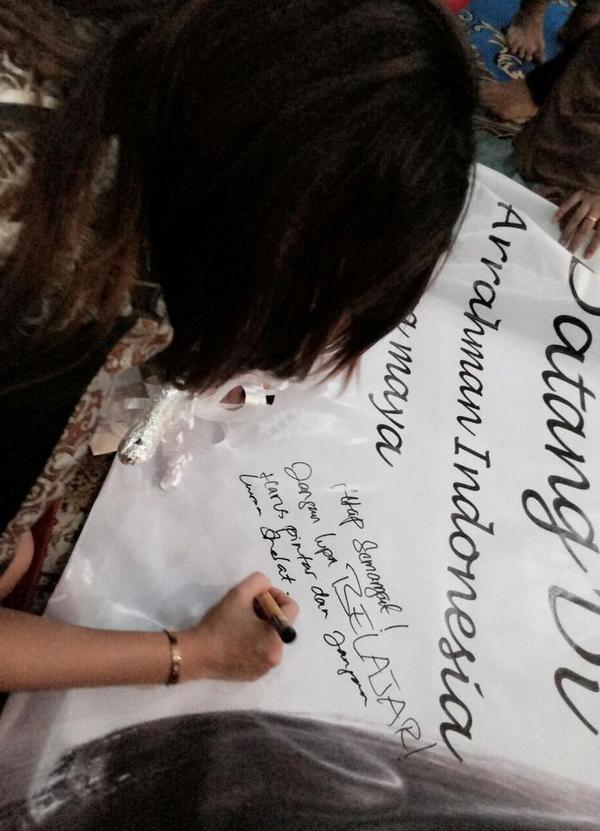 Datang Di
Arrahman Indonesia
maya
tetap semangat!
Jangan lupa BELAJAR!
Harus pintar dan Jangan
Lupa Shalat.